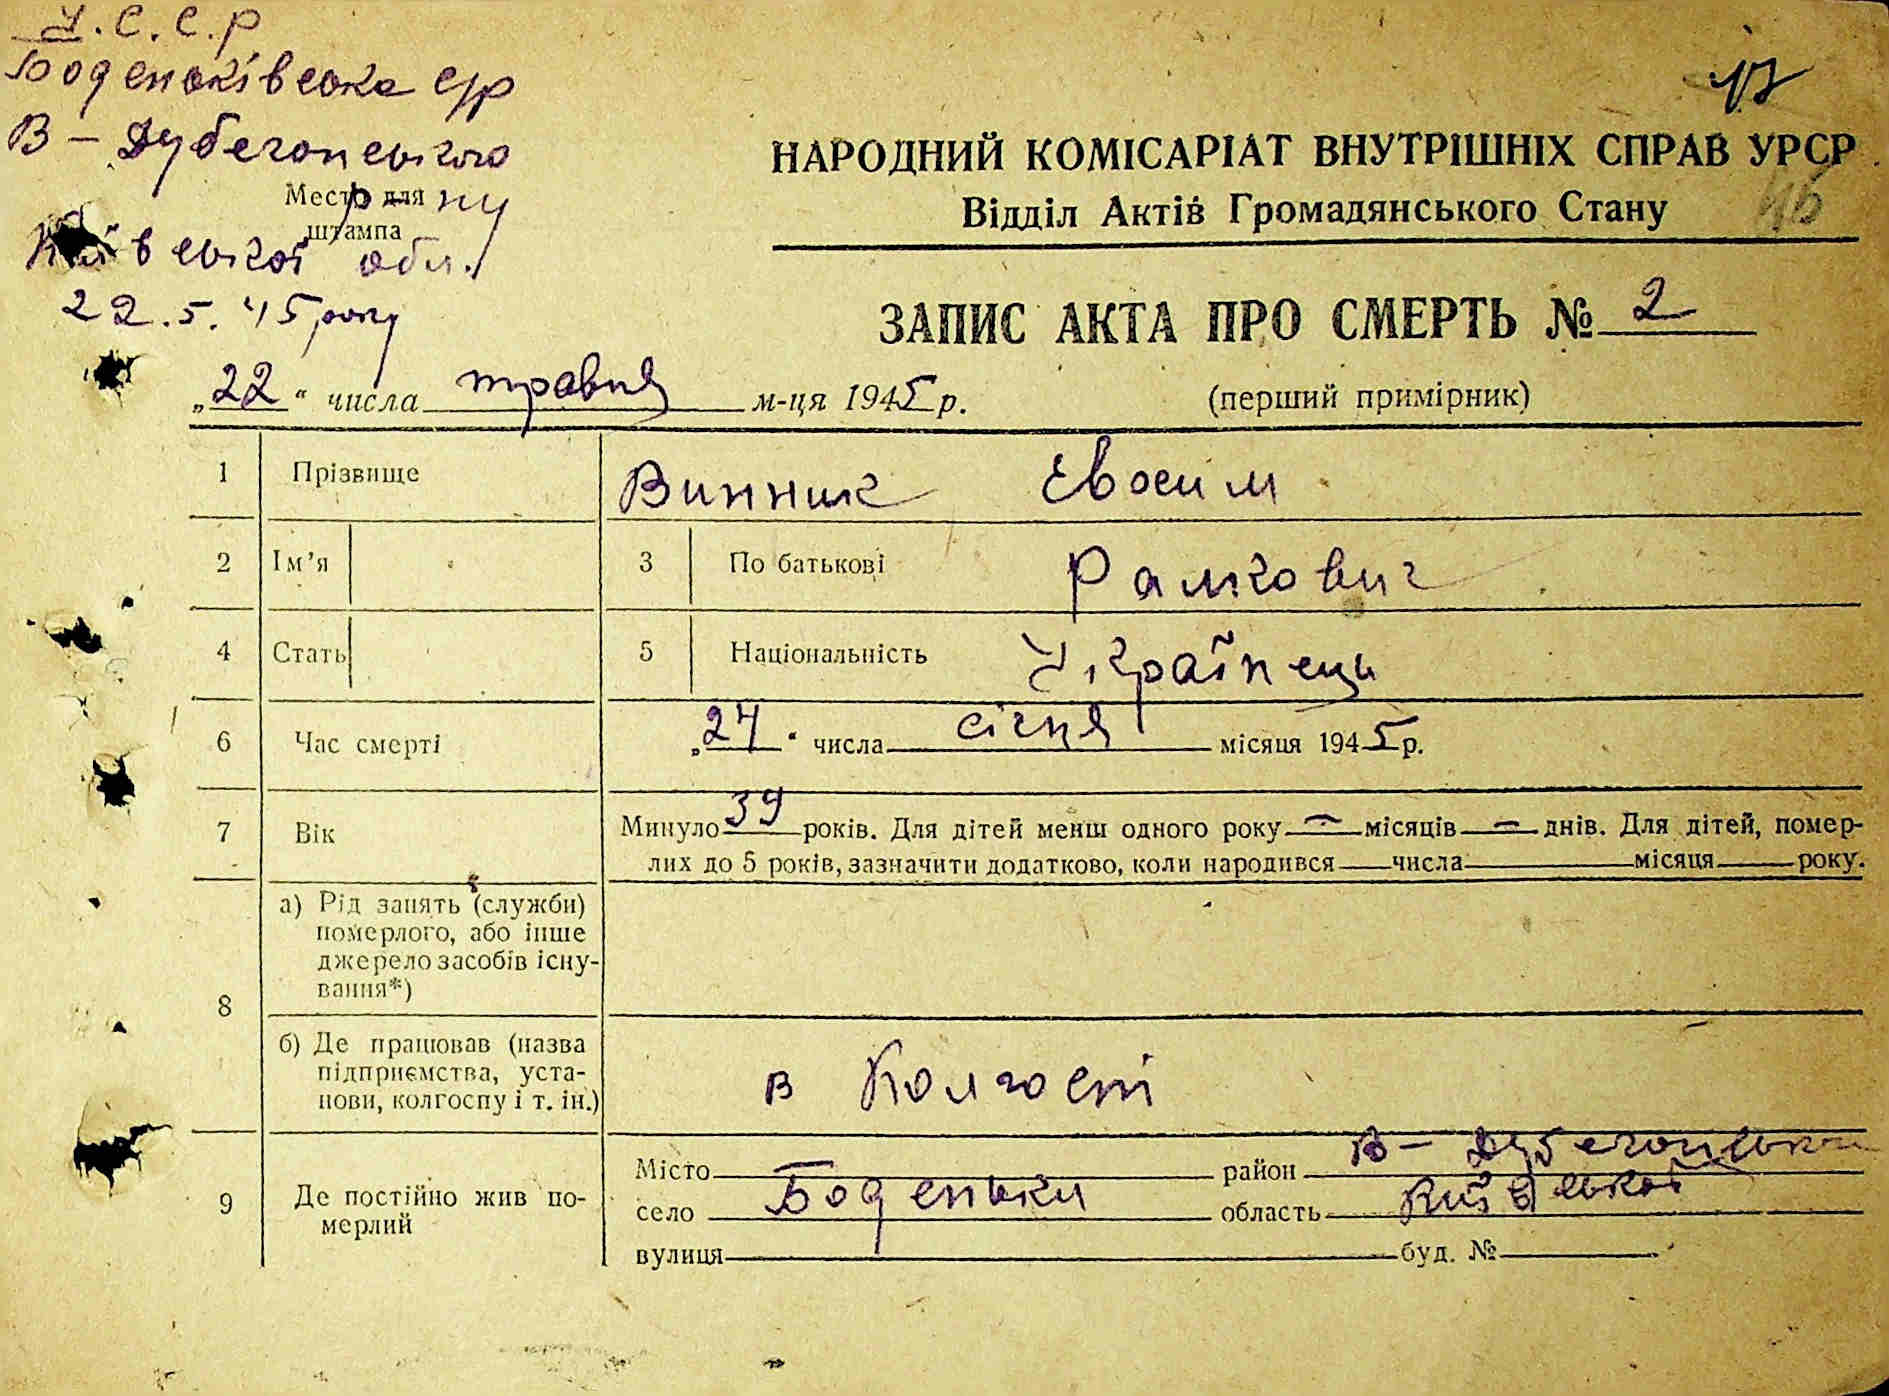 У.С.С.Р
Боденьківська с/р
В – Дубечанського
Место для
р-ну
штампа
Київської обл.
22.5.45 року
НАРОДНИЙ КОМІСАРІАТ ВНУТРІШНІХ СПРАВ УРСР
Відділ Актів Громадянського Стану
46
ЗАПИС АКТА ПРО СМЕРТЬ № 2
„22“ числа травня м-ця 1945 р.
(перший примірник)
1 Прізвище Винник Євсим
2 Ім’я 3 По батькові
4 Стать 5 Національність Українець
6 Час смерті „24“ числа січня місяця 1945 р.
7 Вік Минуло 39 років. Для дітей менш одного року — місяців — днів. Для дітей, помер-
лих до 5 років, зазначити додатково, коли народився числа місяця року.
8 а) Рід занять (служби)
померлого, або інше
джерело засобів існу-
вання*)
б) Де працював (назва
підприємства, уста-
нови, колгоспу і т. ін.)
в Колгоспі
9 Де постійно жив по-
мерлий
Місто район В – Дубечанськи
село Боденьки область Київської
вулиця буд. №